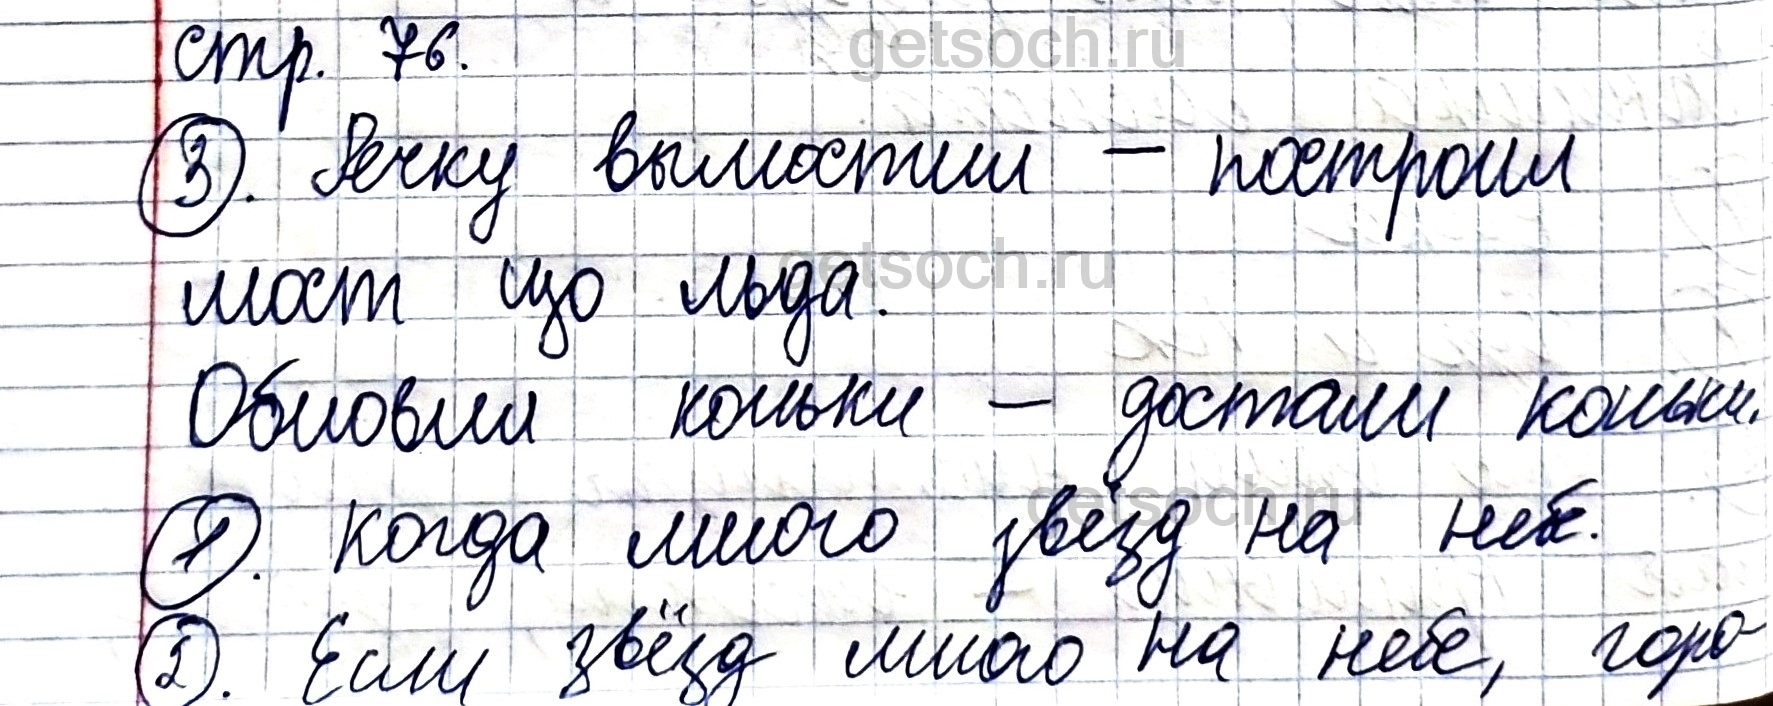 getsoch.ru
стр. 76.
3. Речку вымостил — построил
getsoch.ru
мост изо льда.
Обновил коньки — достали коньки.
getsoch.ru
1. Когда много звёзд на небе.
2. Если звёзд много на небе, горо-